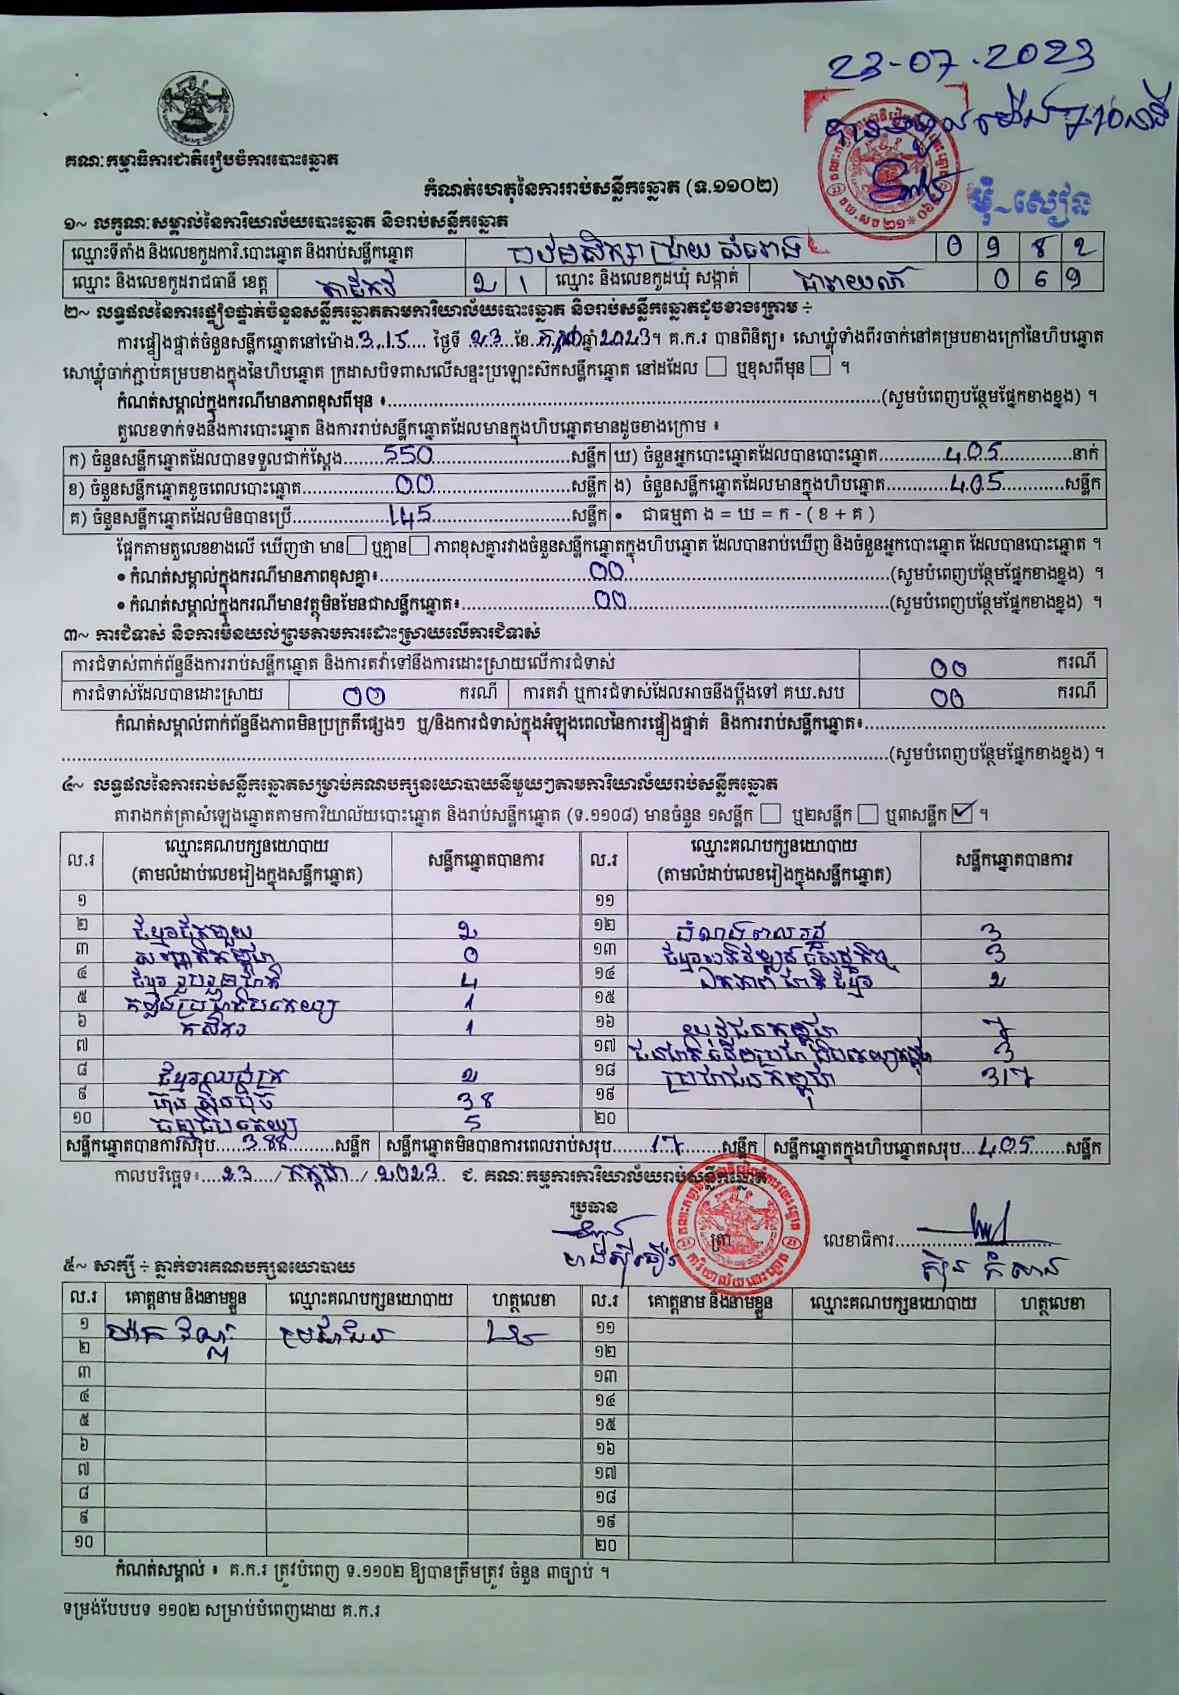 23-07-2023
គណៈកម្មាធិការជាតិរៀបចំការបោះឆ្នោត
កំណត់ហេតុនៃការរាប់សន្លឹកឆ្នោត (ទ.១១០២)
១~ លក្ខណៈសម្គាល់នៃការិយាល័យបោះឆ្នោត និងរាប់សន្លឹកឆ្នោត
ឈ្មោះទីតាំង និងលេខកូដការិ.បោះឆ្នោត និងរាប់សន្លឹកឆ្នោត 0 9 8 2
ឈ្មោះ និងលេខកូដរាជធានី ខេត្ត តាកែវ 2 1 ឈ្មោះ និងលេខកូដឃុំ សង្កាត់ 0 6 9
២~ លទ្ធផលនៃការផ្ទៀងផ្ទាត់ចំនួនសន្លឹកឆ្នោតតាមការិយាល័យបោះឆ្នោត និងរាប់សន្លឹកឆ្នោតដូចខាងក្រោម ÷
ការផ្ទៀងផ្ទាត់ចំនួនសន្លឹកឆ្នោតនៅម៉ោង.3.15.... ថ្ងៃទី ..23...ខែ.កក្កដា.ឆ្នាំ2023។ គ.ក.រ បានពិនិត្យ៖ សោឃ្លុំទាំងពីរចាក់នៅគម្របខាងក្រៅនៃហិបឆ្នោត
សោឃ្លុំចាក់ភ្ជាប់គម្របខាងក្នុងនៃហិបឆ្នោត ក្រដាសបិទពាសលើសន្ទះប្រឡោះស៊កសន្លឹកឆ្នោត នៅដដែល ☐ ឬខុសពីមុន ☐ ។
កំណត់សម្គាល់ក្នុងករណីមានភាពខុសពីមុន ៖......(សូមបំពេញបន្ថែមផ្នែកខាងខ្នង) ។
តួលេខទាក់ទងនឹងការបោះឆ្នោត និងការរាប់សន្លឹកឆ្នោតដែលមានក្នុងហិបឆ្នោតមានដូចខាងក្រោម ៖
ក) ចំនួនសន្លឹកឆ្នោតដែលបានទទួលជាក់ស្តែង.......550.......សន្លឹក ឃ) ចំនួនអ្នកបោះឆ្នោតដែលបានបោះឆ្នោត.......405.......នាក់
ខ) ចំនួនសន្លឹកឆ្នោតខូចពេលបោះឆ្នោត.......00.......សន្លឹក ង) ចំនួនសន្លឹកឆ្នោតដែលមានក្នុងហិបឆ្នោត.......405.......សន្លឹក
គ) ចំនួនសន្លឹកឆ្នោតដែលមិនបានប្រើ.......145.......សន្លឹក • ជាធម្មតា ង = ឃ = ក - ( ខ + គ )
ផ្អែកតាមតួលេខខាងលើ ឃើញថា មាន☐ ឬគ្មាន☐ ភាពខុសគ្នារវាងចំនួនសន្លឹកឆ្នោតក្នុងហិបឆ្នោត ដែលបានរាប់ឃើញ និងចំនួនអ្នកបោះឆ្នោត ដែលបានបោះឆ្នោត ។
• កំណត់សម្គាល់ក្នុងករណីមានភាពខុសគ្នា៖.......00.......(សូមបំពេញបន្ថែមផ្នែកខាងខ្នង) ។
• កំណត់សម្គាល់ក្នុងករណីមានវត្ថុមិនមែនជាសន្លឹកឆ្នោត៖.......00.......(សូមបំពេញបន្ថែមផ្នែកខាងខ្នង) ។
៣~ ការជំទាស់ និងការមិនយល់ព្រមតាមការដោះស្រាយលើការជំទាស់
ការជំទាស់ពាក់ព័ន្ធនឹងការរាប់សន្លឹកឆ្នោត និងការតវ៉ាទៅនឹងការដោះស្រាយលើការជំទាស់ 00 ករណី
ការជំទាស់ដែលបានដោះស្រាយ 00 ករណី ការតវ៉ា ឬការជំទាស់ដែលអាចនឹងប្តឹងទៅ គឃ.សប 00 ករណី
កំណត់សម្គាល់ពាក់ព័ន្ធនឹងភាពមិនប្រក្រតីផ្សេងៗ ឬ/និងការជំទាស់ក្នុងអំឡុងពេលនៃការផ្ទៀងផ្ទាត់ និងការរាប់សន្លឹកឆ្នោត៖.......
.......(សូមបំពេញបន្ថែមផ្នែកខាងខ្នង) ។
៤~ លទ្ធផលនៃការរាប់សន្លឹកឆ្នោតសម្រាប់គណបក្សនយោបាយនីមួយៗតាមការិយាល័យរាប់សន្លឹកឆ្នោត
តារាងកត់ត្រាសំឡេងឆ្នោតតាមការិយាល័យបោះឆ្នោត និងរាប់សន្លឹកឆ្នោត (ទ.១១០៨) មានចំនួន ១សន្លឹក ☐ ឬ២សន្លឹក ☐ ឬ៣សន្លឹក ☑ ។
ល.រ ឈ្មោះគណបក្សនយោបាយ (តាមលំដាប់លេខរៀងក្នុងសន្លឹកឆ្នោត) សន្លឹកឆ្នោតបានការ ល.រ ឈ្មោះគណបក្សនយោបាយ (តាមលំដាប់លេខរៀងក្នុងសន្លឹកឆ្នោត) សន្លឹកឆ្នោតបានការ
១ ១១
២ 2 ១២ 3
៣ 0 ១៣ 3
៤ ខ្មែររួបរួមជាតិ 4 ១៤ ឯកភាពជាតិខ្មែរ 2
៥ កម្លាំងប្រជាធិបតេយ្យ 1 ១៥
៦ កសិករ 1 ១៦ យុវជនកម្ពុជា 7
៧ ១៧ 3
៨ 2 ១៨ ប្រជាជនកម្ពុជា 317
៩ ហ៊្វុនស៊ិនប៉ិច 38 ១៩
១០ 5 ២០
សន្លឹកឆ្នោតបានការសរុប.....388.....សន្លឹក សន្លឹកឆ្នោតមិនបានការពេលរាប់សរុប.....17.....សន្លឹក សន្លឹកឆ្នោតក្នុងហិបឆ្នោតសរុប.....405.....សន្លឹក
កាលបរិច្ឆេទ៖....23..../.កក្កដា../..2023.. ជ. គណៈកម្មការការិយាល័យរាប់សន្លឹកឆ្នោត
ប្រធាន
ត្រា លេខាធិការ..........
៥~ សាក្សី ÷ ភ្នាក់ងារគណបក្សនយោបាយ
ល.រ គោត្តនាម និងនាមខ្លួន ឈ្មោះគណបក្សនយោបាយ ហត្ថលេខា ល.រ គោត្តនាម និងនាមខ្លួន ឈ្មោះគណបក្សនយោបាយ ហត្ថលេខា
១ ប្រជាជន ១១
២ ១២
៣ ១៣
៤ ១៤
៥ ១៥
៦ ១៦
៧ ១៧
៨ ១៨
៩ ១៩
១០ ២០
កំណត់សម្គាល់ ៖ គ.ក.រ ត្រូវបំពេញ ទ.១១០២ ឱ្យបានត្រឹមត្រូវ ចំនួន ៣ច្បាប់ ។
ទម្រង់បែបបទ ១១០២ សម្រាប់បំពេញដោយ គ.ក.រ